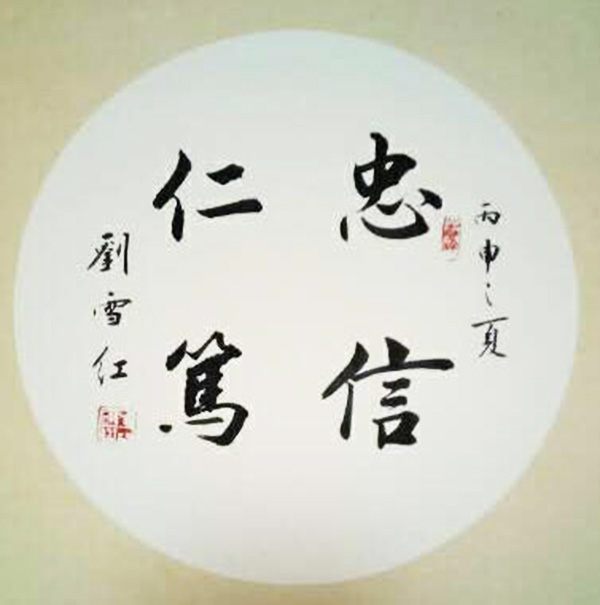 丙申之夏
忠信
仁篤
劉雪红